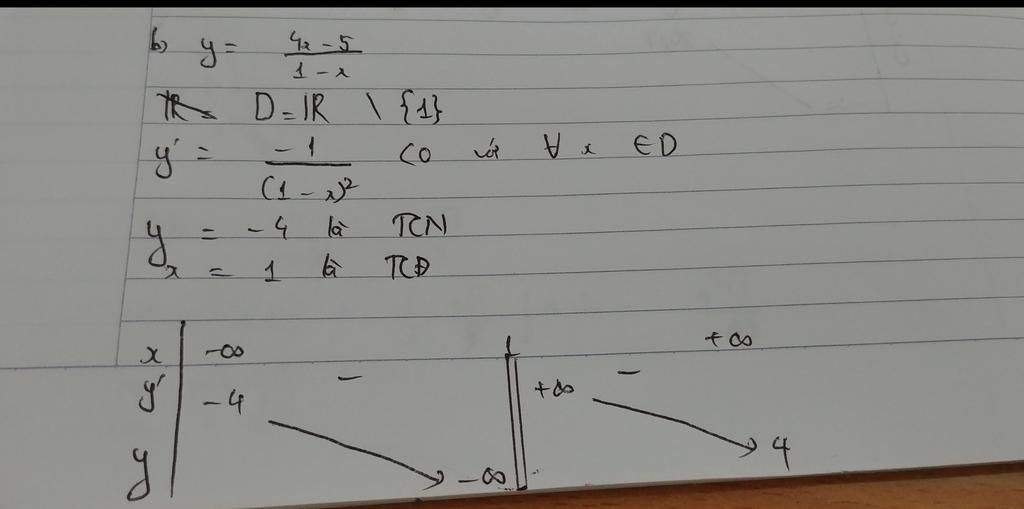 b) y = \frac{4x - 5}{1 - x}
D = ℝ \ {1}
y' = \frac{-1}{(1 - x)^2} < 0 với ∀ x ∈ D
y = -4 là TCN
x = 1 là TCĐ
x -∞ 1 +∞
y' - -
-4 +∞
y -∞ 4